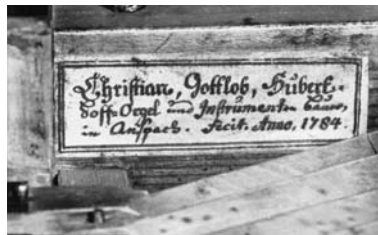 Christian, Gottlob, Hubert.
Hoff-Orgel und Instrumenten bauer,
in Anspach. Fecit. Anno, 1784.